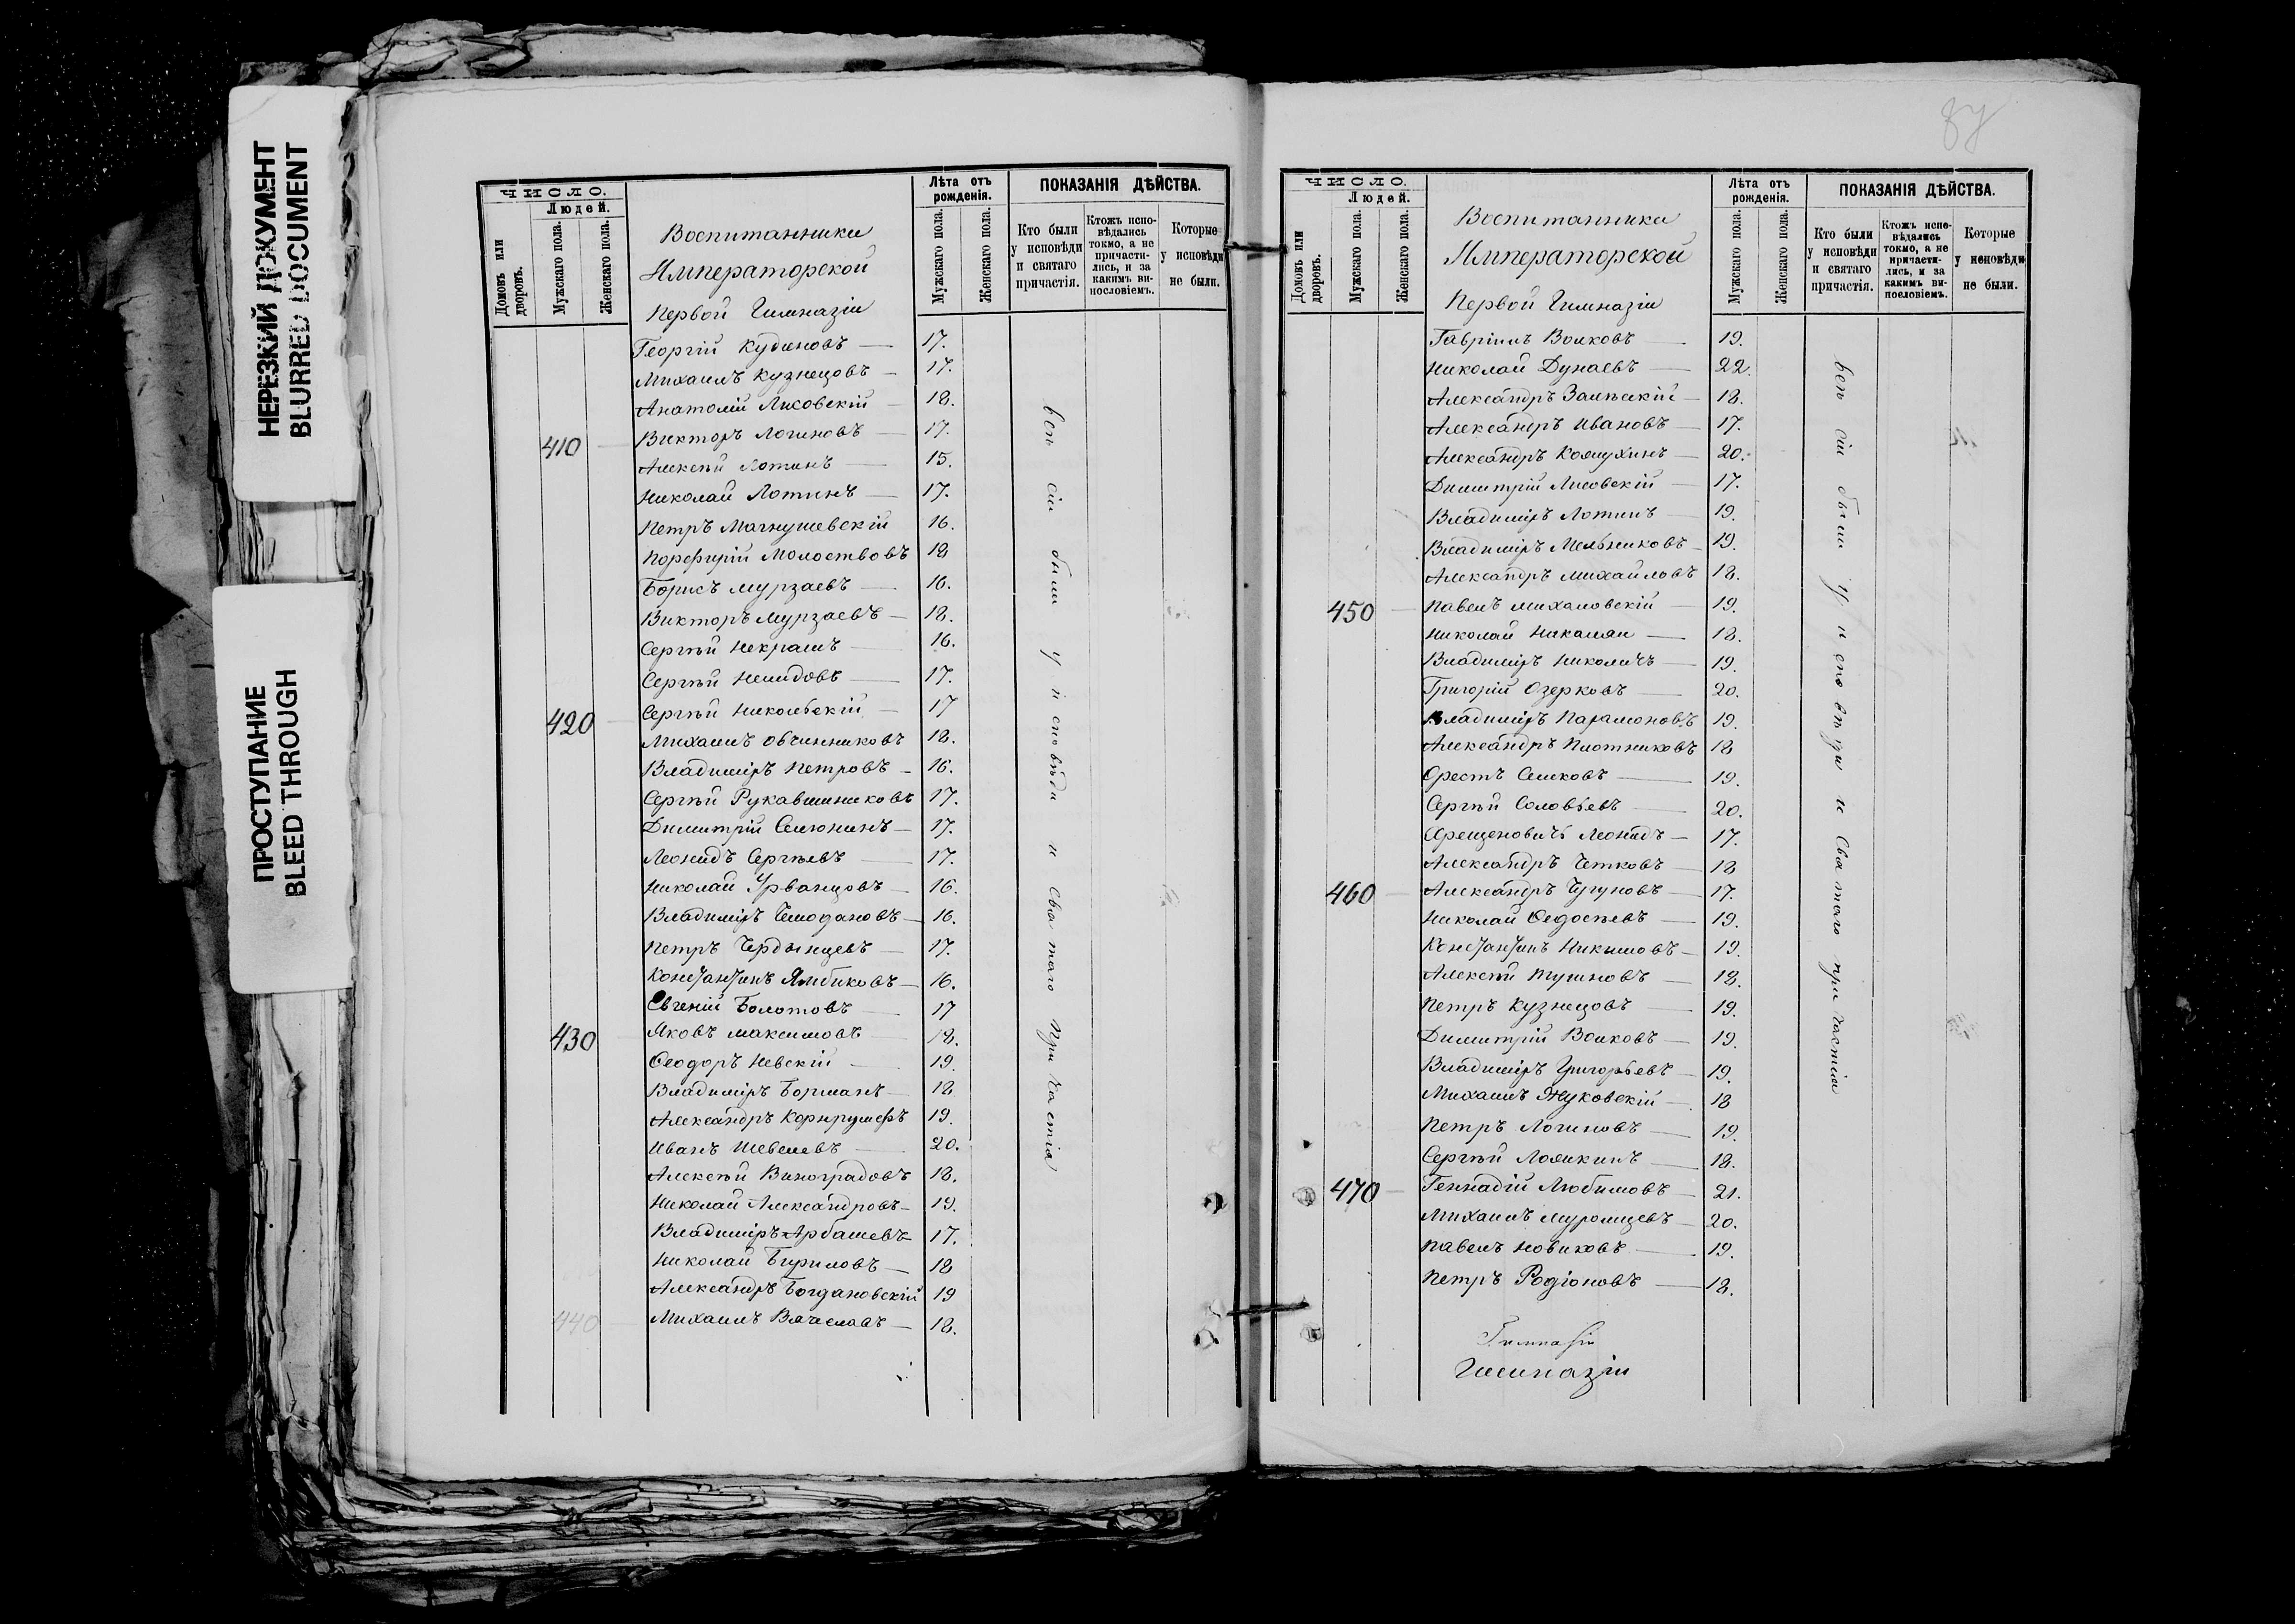 НЕРЕЗКИЙ ДОКУМЕНТ
BLURRED DOCUMENT
ПРОСТУПАНИЕ
BLEED THROUGH
ЧИСЛО.
Людей.
Домовъ или дворовъ.
Мужскаго пола.
Женскаго пола.
Воспитанники
Императорской
Первой Гимназіи
Лѣта отъ рожденія.
Мужскаго пола.
Женскаго пола.
ПОКАЗАНІЯ ДѢЙСТВА.
Кто были у исповѣди и святаго причастія.
Ктожъ исповѣдались токмо, а не причастились, и за какимъ винословіемъ.
Которые у исповѣди не были.
Георгій Кудиновъ 17.
Михаилъ Кузнецовъ 17.
Анатолій Лисовскій 18.
410 Викторъ Логиновъ 17.
Алексѣй Лотинъ 15.
Николай Лотинъ 17.
Петръ Магнушевскій 16.
Порфирій Молоствовъ 18
Борисъ Мурзаевъ 16.
Викторъ Мурзаевъ 18.
Сергѣй Некрашъ 16.
Сергѣй 17.
420 Сергѣй Никольскій 17
Михаилъ Овчинниковъ 18.
Владиміръ Петровъ 16.
Сергѣй Рукавишниковъ 17.
Димитрій Семюнинъ 17.
Леонидъ Сергѣевъ 17.
Николай Урванцовъ 16.
Владиміръ Чемодановъ 16.
Петръ Чердынцевъ 17.
Константинъ Ямбиковъ 16.
Евгеній Болотовъ 17
430 Яковъ Максимовъ 18.
Ѳеодоръ Невскій 19.
Владиміръ Борманъ 18
Александръ 19.
Иванъ Шевелевъ 20.
Алексѣй Виноградовъ 18.
Николай Александровъ 19.
Владиміръ Арбашевъ 17.
Николай Бириловъ 18
Александръ Богдановскій 19
440 Михаилъ Вячеславъ 18.
всѣ сіи были у исповѣди и святаго причастія
ЧИСЛО.
Людей.
Домовъ или дворовъ.
Мужскаго пола.
Женскаго пола.
Воспитанники
Императорской
Первой Гимназіи
Лѣта отъ рожденія.
Мужскаго пола.
Женскаго пола.
ПОКАЗАНІЯ ДѢЙСТВА.
Кто были у исповѣди и святаго причастія.
Ктожъ исповѣдались токмо, а не причастились, и за какимъ винословіемъ.
Которые у исповѣди не были.
Гавріилъ Волковъ 19.
Николай Дунаевъ 22.
Александръ Залѣсскій 18.
Александръ Ивановъ 17.
Александръ 20.
Димитрій Лисовскій 17.
Владиміръ Лотинъ 19.
Владиміръ Мельниковъ 19.
Александръ Михайловъ 18.
450 Павелъ Михаловскій 19.
Николай 18.
Владиміръ Николичъ 19.
Григорій Озерковъ 20.
Владиміръ Парамоновъ 19.
Александръ Плотниковъ 18
Орестъ Семковъ 19.
Сергѣй Соловьевъ 20.
Леонидъ 17.
Александръ Четковъ 18
460 Александръ Чугуновъ 17.
Николай Ѳедосѣевъ 19.
Константинъ Никишовъ 19.
Алексѣй Тугиновъ 18.
Петръ Кузнецовъ 19.
Димитрій Волковъ 19.
Владиміръ Григорьевъ 19.
Михаилъ Жуковскій 18
Петръ Логиновъ 19.
Сергѣй 18.
470 Геннадій Любимовъ 21.
Михаилъ Муромцевъ 20.
Павелъ Новиковъ 19.
Петръ Родіоновъ 18.
Гимназіи
Гимназіи
всѣ сіи были у исповѣди и святаго причастія